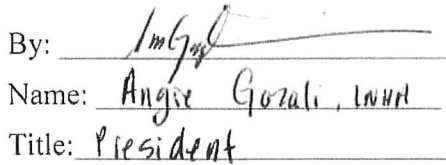 By:
Name: Angie Gozali, LNHA
Title: President